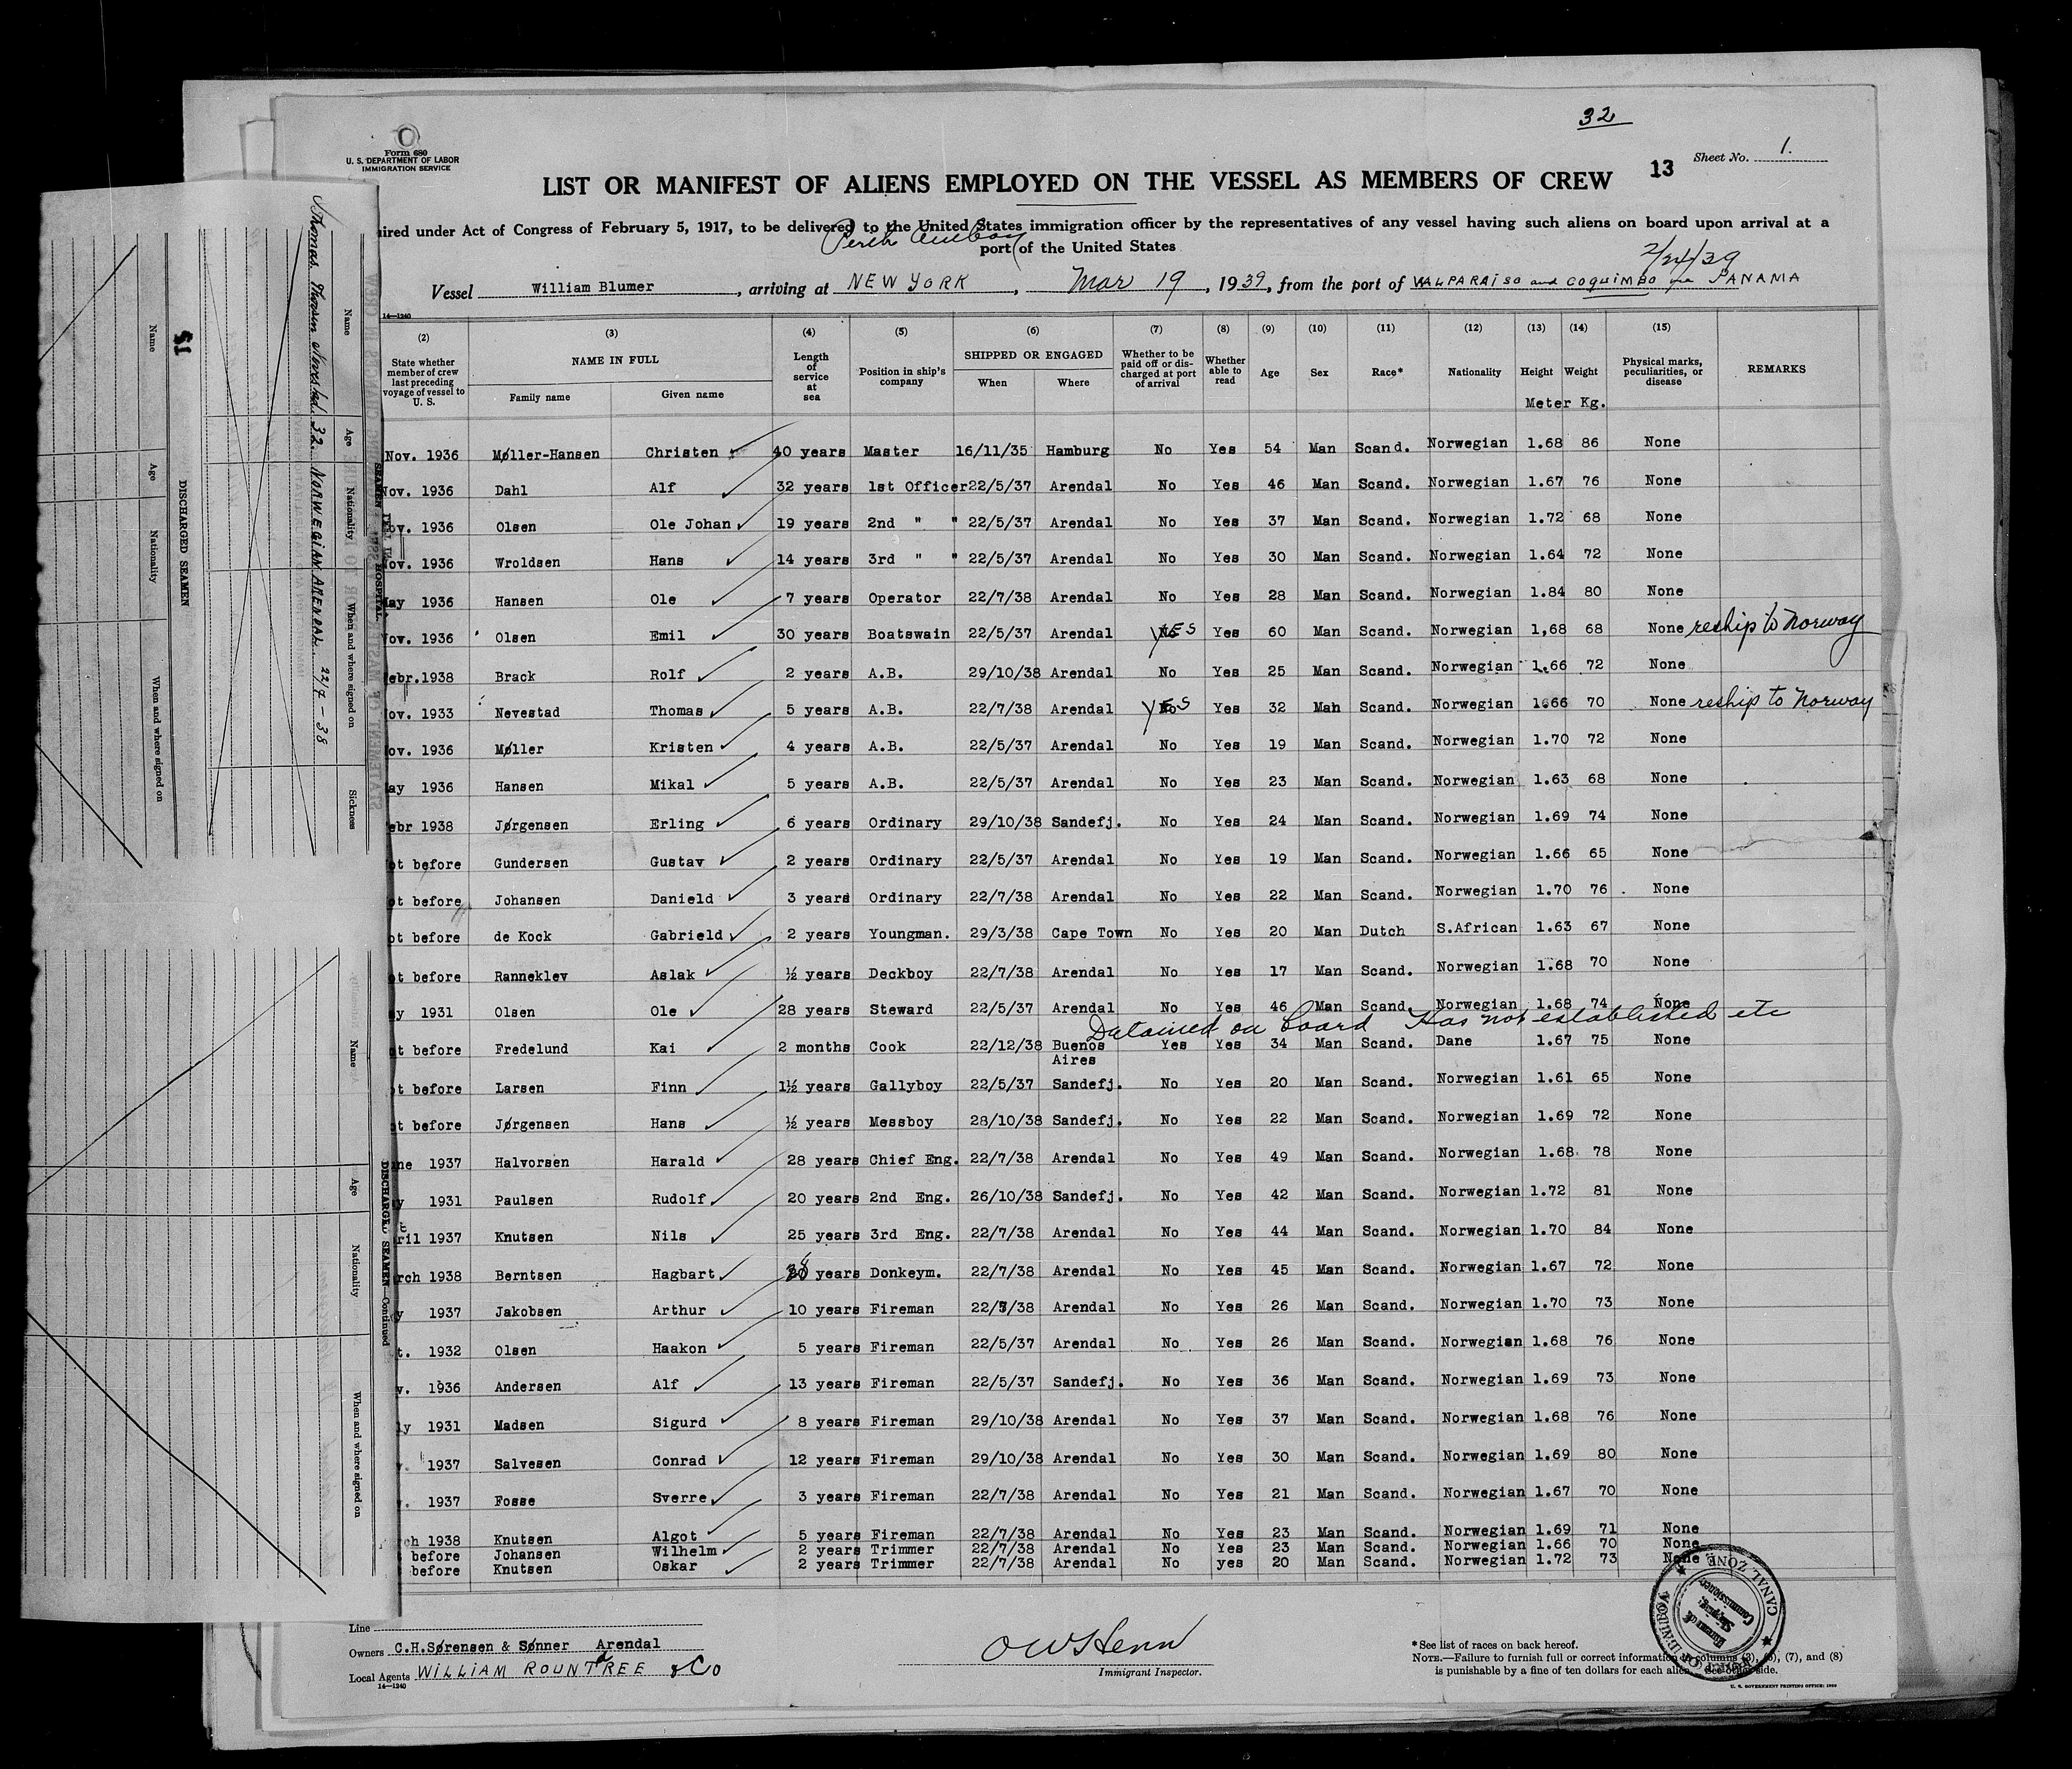 32
Form 680
U. S. DEPARTMENT OF LABOR
IMMIGRATION SERVICE
13
Sheet No. 1.
LIST OR MANIFEST OF ALIENS EMPLOYED ON THE VESSEL AS MEMBERS OF CREW
ired under Act of Congress of February 5, 1917, to be delivered to the United States immigration officer by the representatives of any vessel having such aliens on board upon arrival at a
Perth Amboy
port of the United States
2/24/39
Vessel William Blumer, arriving at NEW YORK, Mar 19, 1939, from the port of VALPARAISO and COQUIMBO via PANAMA
14—1240
(2) (3) (4) (5) (6) (7) (8) (9) (10) (11) (12) (13) (14) (15)
State whether member of crew last preceding voyage of vessel to U. S. NAME IN FULL Family name Given name Length of service at sea Position in ship's company SHIPPED OR ENGAGED When Where Whether to be paid off or discharged at port of arrival Whether able to read Age Sex Race* Nationality Height Weight Physical marks, peculiarities, or disease REMARKS
Meter Kg.
Nov. 1936 Møller-Hansen Christen 40 years Master 16/11/35 Hamburg No Yes 54 Man Scand. Norwegian 1.68 86 None
Nov. 1936 Dahl Alf 32 years 1st Officer 22/5/37 Arendal No Yes 46 Man Scand. Norwegian 1.67 76 None
ov. 1936 Olsen Ole Johan 19 years 2nd " " 22/5/37 Arendal No Yes 37 Man Scand. Norwegian 1.72 68 None
Nov. 1936 Wroldsen Hans 14 years 3rd " " 22/5/37 Arendal No Yes 30 Man Scand. Norwegian 1.64 72 None
May 1936 Hansen Ole 7 years Operator 22/7/38 Arendal No Yes 28 Man Scand. Norwegian 1.84 80 None
Nov. 1936 Olsen Emil 30 years Boatswain 22/5/37 Arendal YES Yes 60 Man Scand. Norwegian 1,68 68 None reship to Norway
ebr.1938 Brack Rolf 2 years A.B. 29/10/38 Arendal No Yes 25 Man Scand. Norwegian 1.66 72 None
ov. 1933 Nevestad Thomas 5 years A.B. 22/7/38 Arendal YES Yes 32 Man Scand. Norwegian 1.66 70 None reship to Norway
ov. 1936 Møller Kristen 4 years A.B. 22/5/37 Arendal No Yes 19 Man Scand. Norwegian 1.70 72 None
ay 1936 Hansen Mikal 5 years A.B. 22/5/37 Arendal No Yes 23 Man Scand. Norwegian 1.63 68 None
ebr 1938 Jørgensen Erling 6 years Ordinary 29/10/38 Sandefj. No Yes 24 Man Scand. Norwegian 1.69 74 None
ot before Gundersen Gustav 2 years Ordinary 22/5/37 Arendal No Yes 19 Man Scand. Norwegian 1.66 65 None
ot before Johansen Danield 3 years Ordinary 22/7/38 Arendal No Yes 22 Man Scand. Norwegian 1.70 76 None
ot before de Kock Gabrield 2 years Youngman. 29/3/38 Cape Town No Yes 20 Man Dutch S.African 1.63 67 None
ot before Ranneklev Aslak ½ years Deckboy 22/7/38 Arendal No Yes 17 Man Scand. Norwegian 1.68 70 None
y 1931 Olsen Ole 28 years Steward 22/5/37 Arendal No Yes 46 Man Scand. Norwegian 1.68 74 None
Detained on board Has not established etc
ot before Fredelund Kai 2 months Cook 22/12/38 Buenos Aires Yes Yes 34 Man Scand. Dane 1.67 75 None
ot before Larsen Finn 1½ years Gallyboy 22/5/37 Sandefj. No Yes 20 Man Scand. Norwegian 1.61 65 None
ot before Jørgensen Hans ½ years Messboy 28/10/38 Sandefj. No Yes 22 Man Scand. Norwegian 1.69 72 None
ne 1937 Halvorsen Harald 28 years Chief Eng. 22/7/38 Arendal No Yes 49 Man Scand. Norwegian 1.68 78 None
y 1931 Paulsen Rudolf 20 years 2nd Eng. 26/10/38 Sandefj. No Yes 42 Man Scand. Norwegian 1.72 81 None
ril 1937 Knutsen Nils 25 years 3rd Eng. 22/7/38 Arendal No Yes 44 Man Scand. Norwegian 1.70 84 None
rch 1938 Berntsen Hagbart years Donkeym. 22/7/38 Arendal No Yes 45 Man Scand. Norwegian 1.67 72 None
y 1937 Jakobsen Arthur 10 years Fireman 22/7/38 Arendal No Yes 26 Man Scand. Norwegian 1.70 73 None
t. 1932 Olsen Haakon 5 years Fireman 22/5/37 Arendal No Yes 26 Man Scand. Norwegian 1.68 76 None
v. 1936 Andersen Alf 13 years Fireman 22/5/37 Sandefj. No Yes 36 Man Scand. Norwegian 1.69 73 None
ly 1931 Madsen Sigurd 8 years Fireman 29/10/38 Arendal No Yes 37 Man Scand. Norwegian 1.68 76 None
1937 Salvesen Conrad 12 years Fireman 29/10/38 Arendal No Yes 30 Man Scand. Norwegian 1.69 80 None
. 1937 Fosse Sverre 3 years Fireman 22/7/38 Arendal No Yes 21 Man Scand. Norwegian 1.67 70 None
ch 1938 Knutsen Algot 5 years Fireman 22/7/38 Arendal No Yes 23 Man Scand. Norwegian 1.69 71 None
before Johansen Wilhelm 2 years Trimmer 22/7/38 Arendal No Yes 23 Man Scand. Norwegian 1.66 70 None
before Knutsen Oskar 2 years Trimmer 22/7/38 Arendal No yes 20 Man Scand. Norwegian 1.72 73 None
Line
Owners C.H.Sørensen & Sønner Arendal
Local Agents WILLIAM ROUNTREE & Co
14—1240
Immigrant Inspector.
*See list of races on back hereof.
NOTE.—Failure to furnish full or correct information in columns (3), (5), (7), and (8)
is punishable by a fine of ten dollars for each alien. See other side.
U. S. GOVERNMENT PRINTING OFFICE: 1938
CANAL ZONE
Shipping Commissioner
Name Age Nationality When and where signed on Sickness
Thomas Thosen Nevestad. 32. NORWEGIAN ARENDAL 22/7-38
SI
DISCHARGED SEAMEN
Name Age Nationality When and where signed on
DISCHARGED SEAMEN—Continued
Name Age Nationality When and where signed on